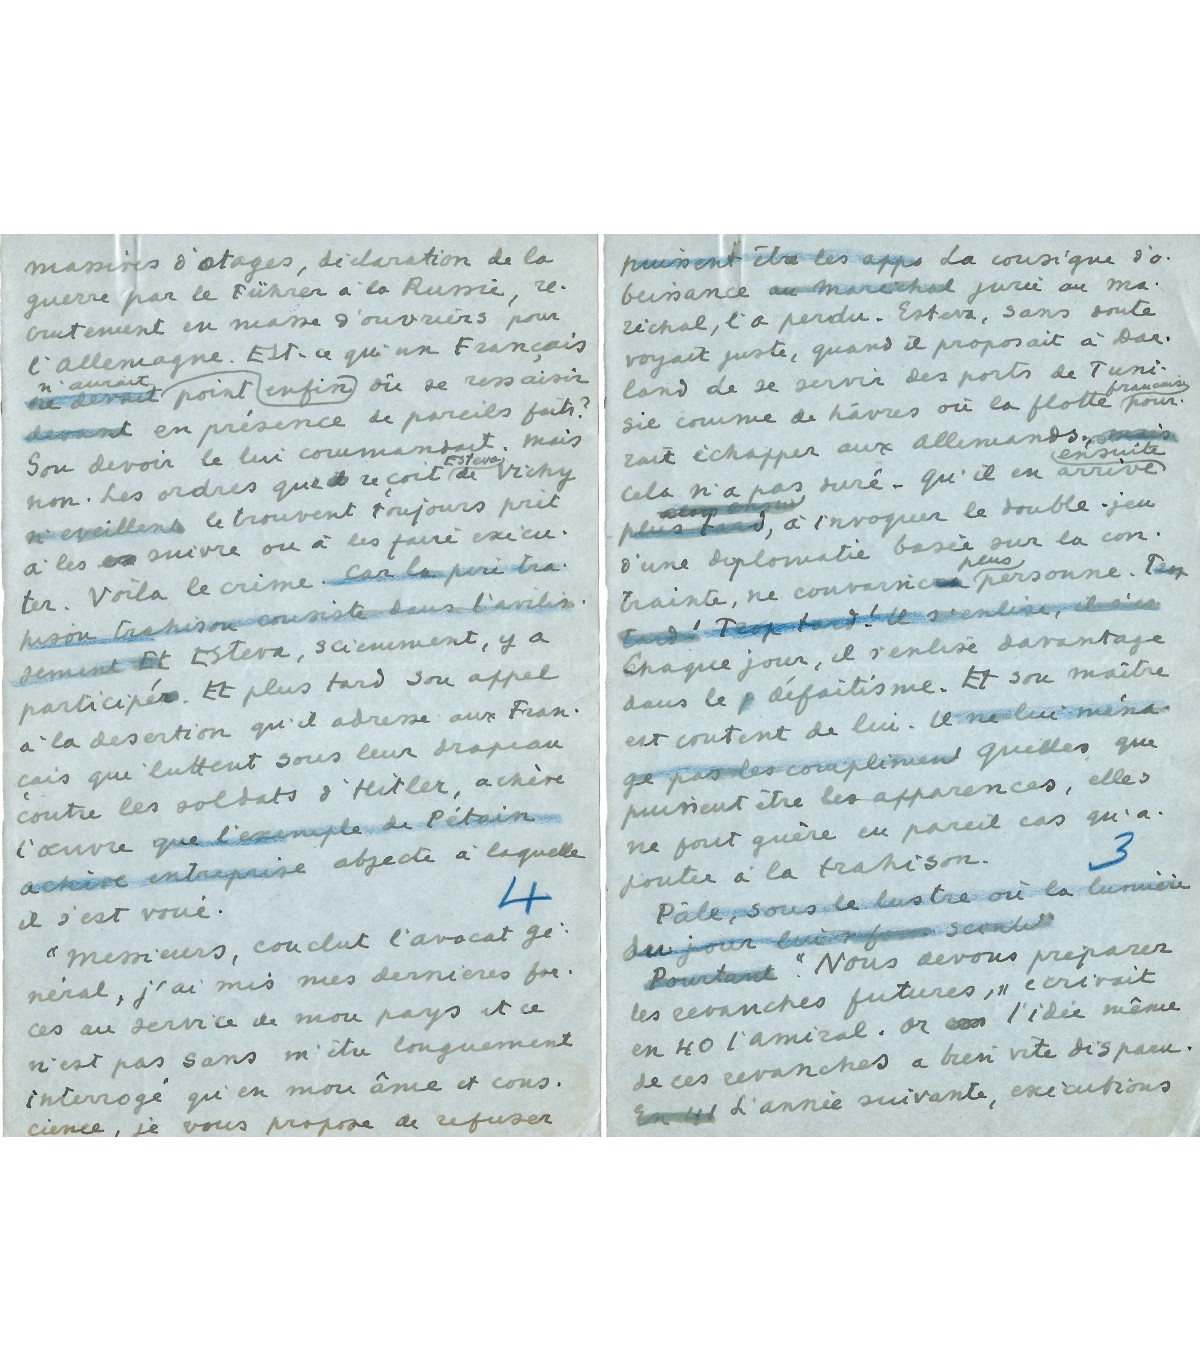 massives d'otages, déclaration de la
guerre par le Führer à la Russie, re-
crutement en masse d'ouvriers pour
l'Allemagne. Est-ce qu'un Français
n'aurait
ne devait point enfin dû se ressaisir
devant en présence de pareils faits?
Son devoir le lui commandait. Mais
Esteva
non. Les ordres que reçoit de Vichy
n'éveillent le trouvent toujours prêt
à les suivre ou à les faire exécu-
ter. Voilà le crime. Car la pire tra-
hison trahison consiste dans l'avilis-
sement Et Esteva, sciemment, y a
participé. Et plus tard son appel
à la désertion qu'il adresse aux Fran-
çais qui luttent sous leur drapeau
contre les soldats d'Hitler, achève
l'œuvre que l'exemple de Pétain
achève entreprise abjecte à laquelle
il s'est voué.
4
"Messieurs, conclut l'avocat gé-
néral, j'ai mis mes dernières for-
ces au service de mon pays et ce
n'est pas sans m'être longuement
interrogé qu'en mon âme et cons-
cience, je vous propose de refuser
puissent être les app La consigne d'o-
béissance au maréchal jurée au ma-
réchal, l'a perdu. Esteva, sans doute
voyait juste, quand il proposait à Dar-
land de se servir des ports de Tuni-
française
sie comme de hâvres où la flotte pour-
rait échapper aux Allemands, mais
ensuite
cela n'a pas duré - qu'il en arrive
plus tard, à invoquer le double-jeu
d'une diplomatie basée sur la con-
plus
trainte, ne convainc personne. Trop
tard! Trop tard! Il s'enlise, il s'en
Chaque jour, il s'enlise davantage
dans le défaitisme. Et son maître
est content de lui. Il ne lui ména-
ge pas les compliment Quelles que
puissent être les apparences, elles
ne font guère en pareil cas qu'a-
jouter à la trahison.
3
Pâle, sous le lustre où la lumière
du jour lui scinde
Pourtant "Nous devons préparer
les revanches futures," écrivait
en 40 l'amiral. Or l'idée même
de ces revanches a bien vite disparu.
En 41 L'année suivante, exécutions